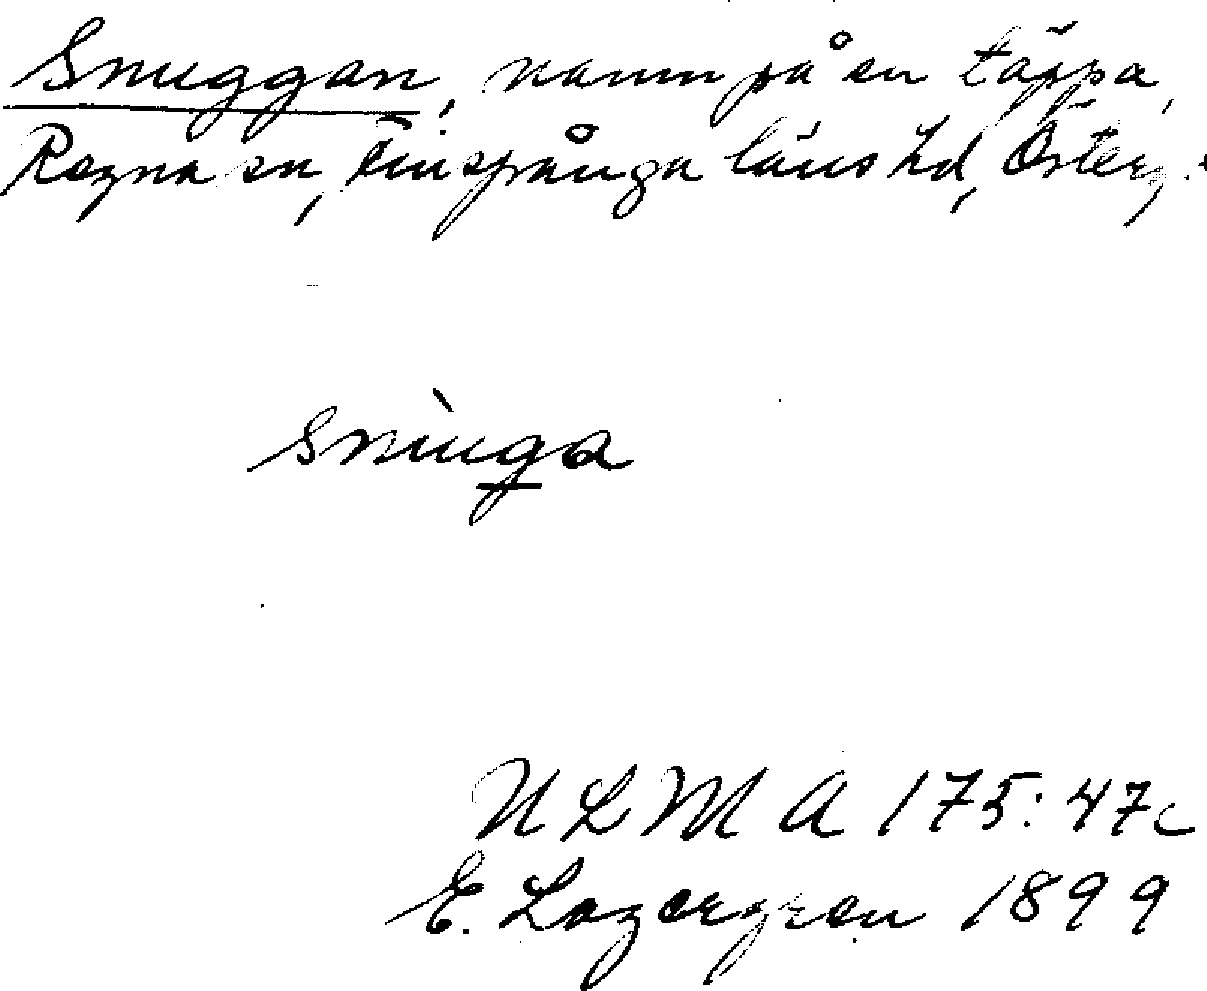 Snuggan, namn på en täppa,
Regna sn, Finspånga läns hd, Österg.
snùga
ULMA 175:47c
E. Lagergren 1899